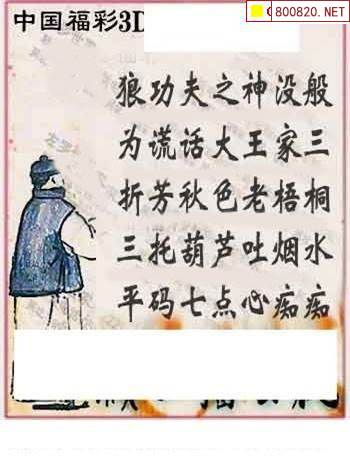 800820.NET
中国福彩3D
狼功夫之神没般
为谎话大王家三
折芳秋色老梧桐
三托葫芦吐烟水
平码七点心痴痴